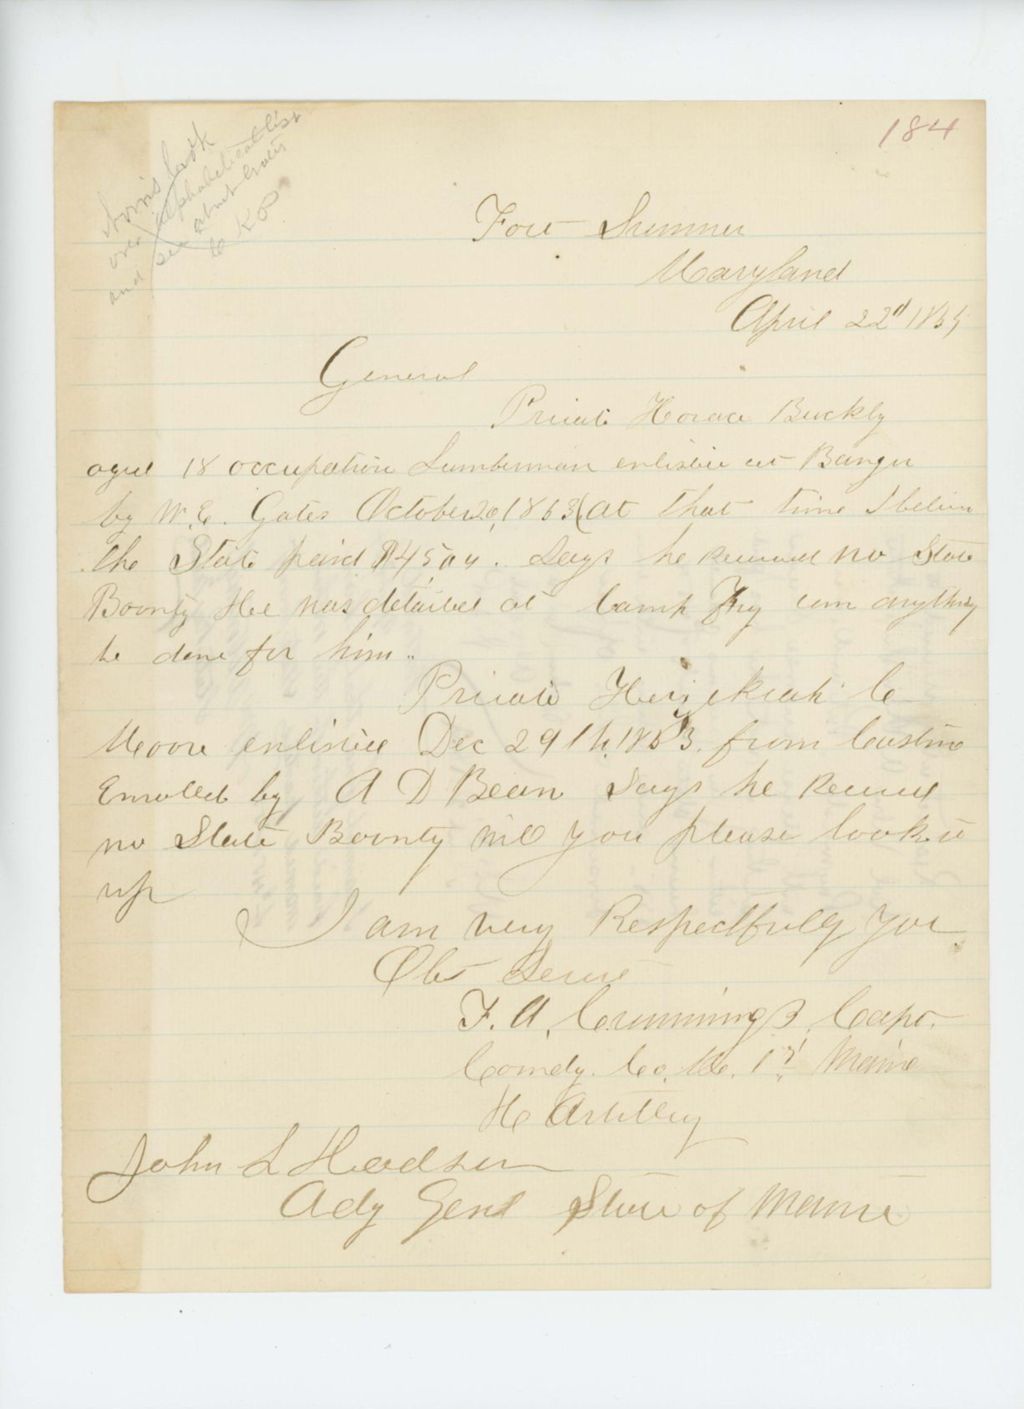 184
look
over alphabetical list
and see about
to
Fort Sumner
Maryland
April 22d 1864
General
Private Horace Buckly
aged 18 occupation Lumberman enlisted at Bangor
by W.E. Gates October 20, 1863 (at that time I believe
the State paid $45 Says he received no State
Bounty He was detailed at Camp can anything
be done for him..
Private Hezekiah C
Moore enlisted Dec 29th, 1863. from Castine
Enrolled by A D Bean Says he Received
no State Bounty will you please look it
up
I am very Respectfully Your
Obt Servt
F. A. Cummings, Capt.
Comdg. Co. M. 1st Maine
H Artillery
John L Hodsdon
Adj Genl State of Maine